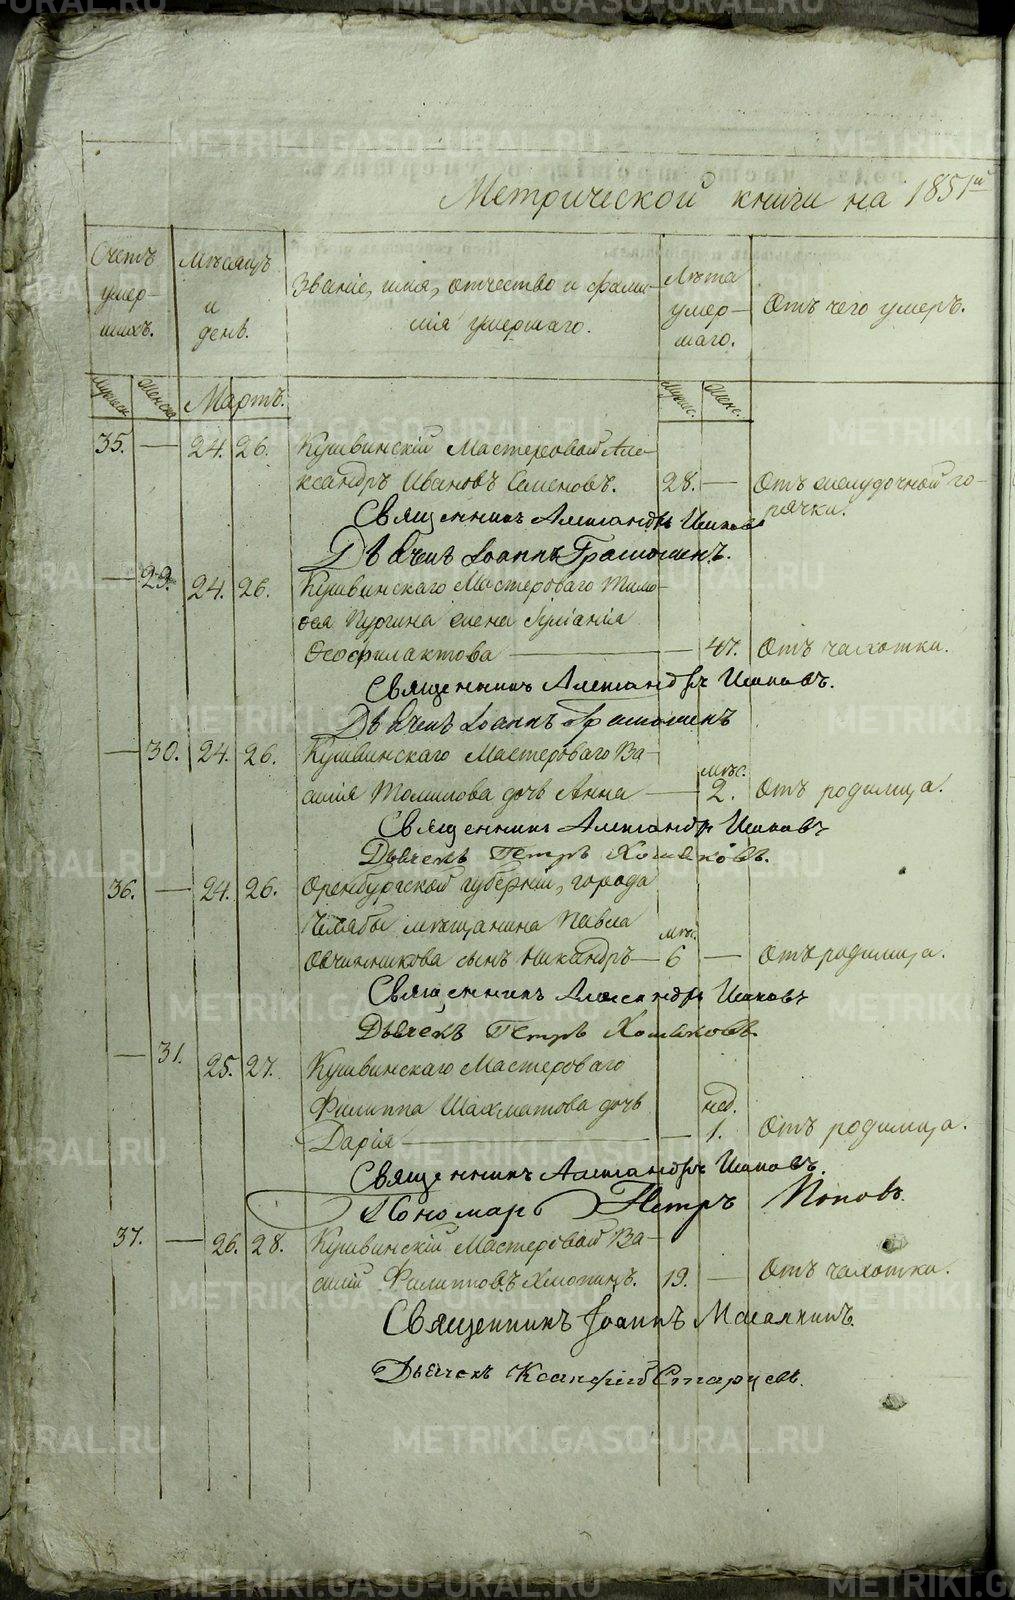 Метрической книги на 1851й
Счетъ умер- шихъ.
Мѣсяцъ и день.
Званіе, имя, отчество и фами-
лія умершаго.
Лѣта умер- шаго.
Отъ чего умеръ.
Мужеск. Женска. Мартъ. Мужес. Женс.
35. — 24. 26. Кушвинскій Мастеровой Але-
ксандръ Ивановъ Семеновъ. 28. — Отъ желудочной го-
рячки.
Священникъ Александръ
Дьячекъ Іоаннъ
— 29. 24. 26. Кушвинскаго Мастероваго Тимо-
ѳея Пургина жена Іуліанія
Ѳеофилактова — 47. Отъ чахотки.
Священникъ Александръ
Дьячекъ Іоаннъ
— 30. 24. 26. Кушвинскаго Мастероваго Ва-
силія Томилова дочь Анна — мѣс. 2. Отъ родимца.
Священникъ Александръ
Дьячекъ Петръ Хомяковъ.
36. — 24. 26. Оренбургской губерніи, города
Челябы мѣщанина Павла
Овчинникова сынъ Никандръ — мѣс. 6 — Отъ родимца.
Священникъ Александръ
Дьячекъ Петръ Хомяковъ.
— 31. 25. 27. Кушвинскаго Мастероваго
Филиппа Шахматова дочь
Дарія — нед. 1. Отъ родимца.
Священникъ Александръ
Пономарь Петръ Поповъ.
37. — 26. 28. Кушвинскій Мастеровой Ва-
силій Филипповъ Хлопинъ. 19. — Отъ чахотки.
Священникъ Іоаннъ
Дьячекъ Ксанфій Старцевъ.
METRIKI.GASO-URAL.RU